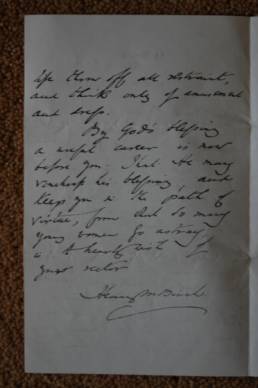 life throw off all restraint,
and think only of amusement
and dress.
By God's blessing
a useful career is now
before you. That He may
vouchsafe his blessing and
keep you in the path of
virtue, from which so many
young women go astray
is the hearty wish of
your rector
Henry M Birch